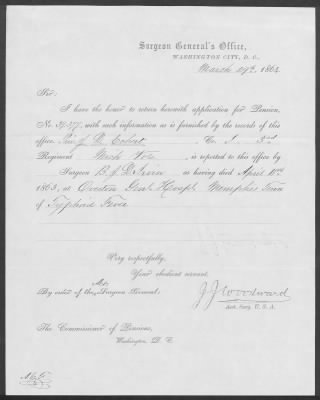 Surgeon General's Office,
WASHINGTON CITY, D. C.,
March 29th, 1864
Sir:
I have the honor to return herewith application for Pension,
No. with such information as is furnished by the records of this
office. M. Co. I. 3rd
Regiment Mich Vols, is reported to this office by
Surgeon B. J. D. Irwin as having died April 10th
1863, at Overton Genl Hospl, Memphis Tenn
of Typhoid Fever
Very respectfully,
Your obedient servant,
By order of the Surgeon General:
J J Woodward
Ast. Surg. U. S. A.
The Commissioner of Pensions,
Washington, D. C.